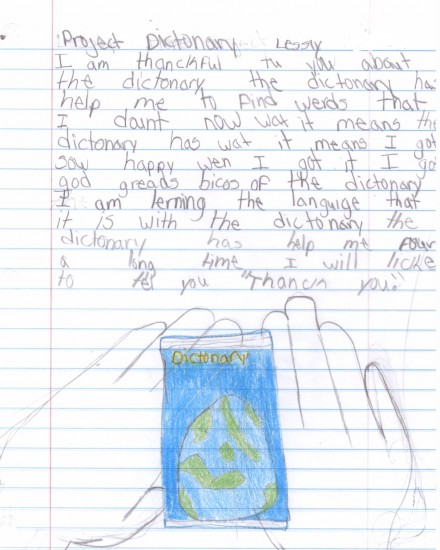 Project Dictonary Lessy
I am thanckful tu you about
the dictonary the dictonary has
help me to find werds that
I daunt now wat it means the
dictonary has wat it means I got
sow happy wen I got it I got
god greads bicos of the dictonary
I am lerning the languige that
it is with the dictonary the
dictonary has help me four
a long time I will licke
to tel you "Thanck you!"
Dictonary